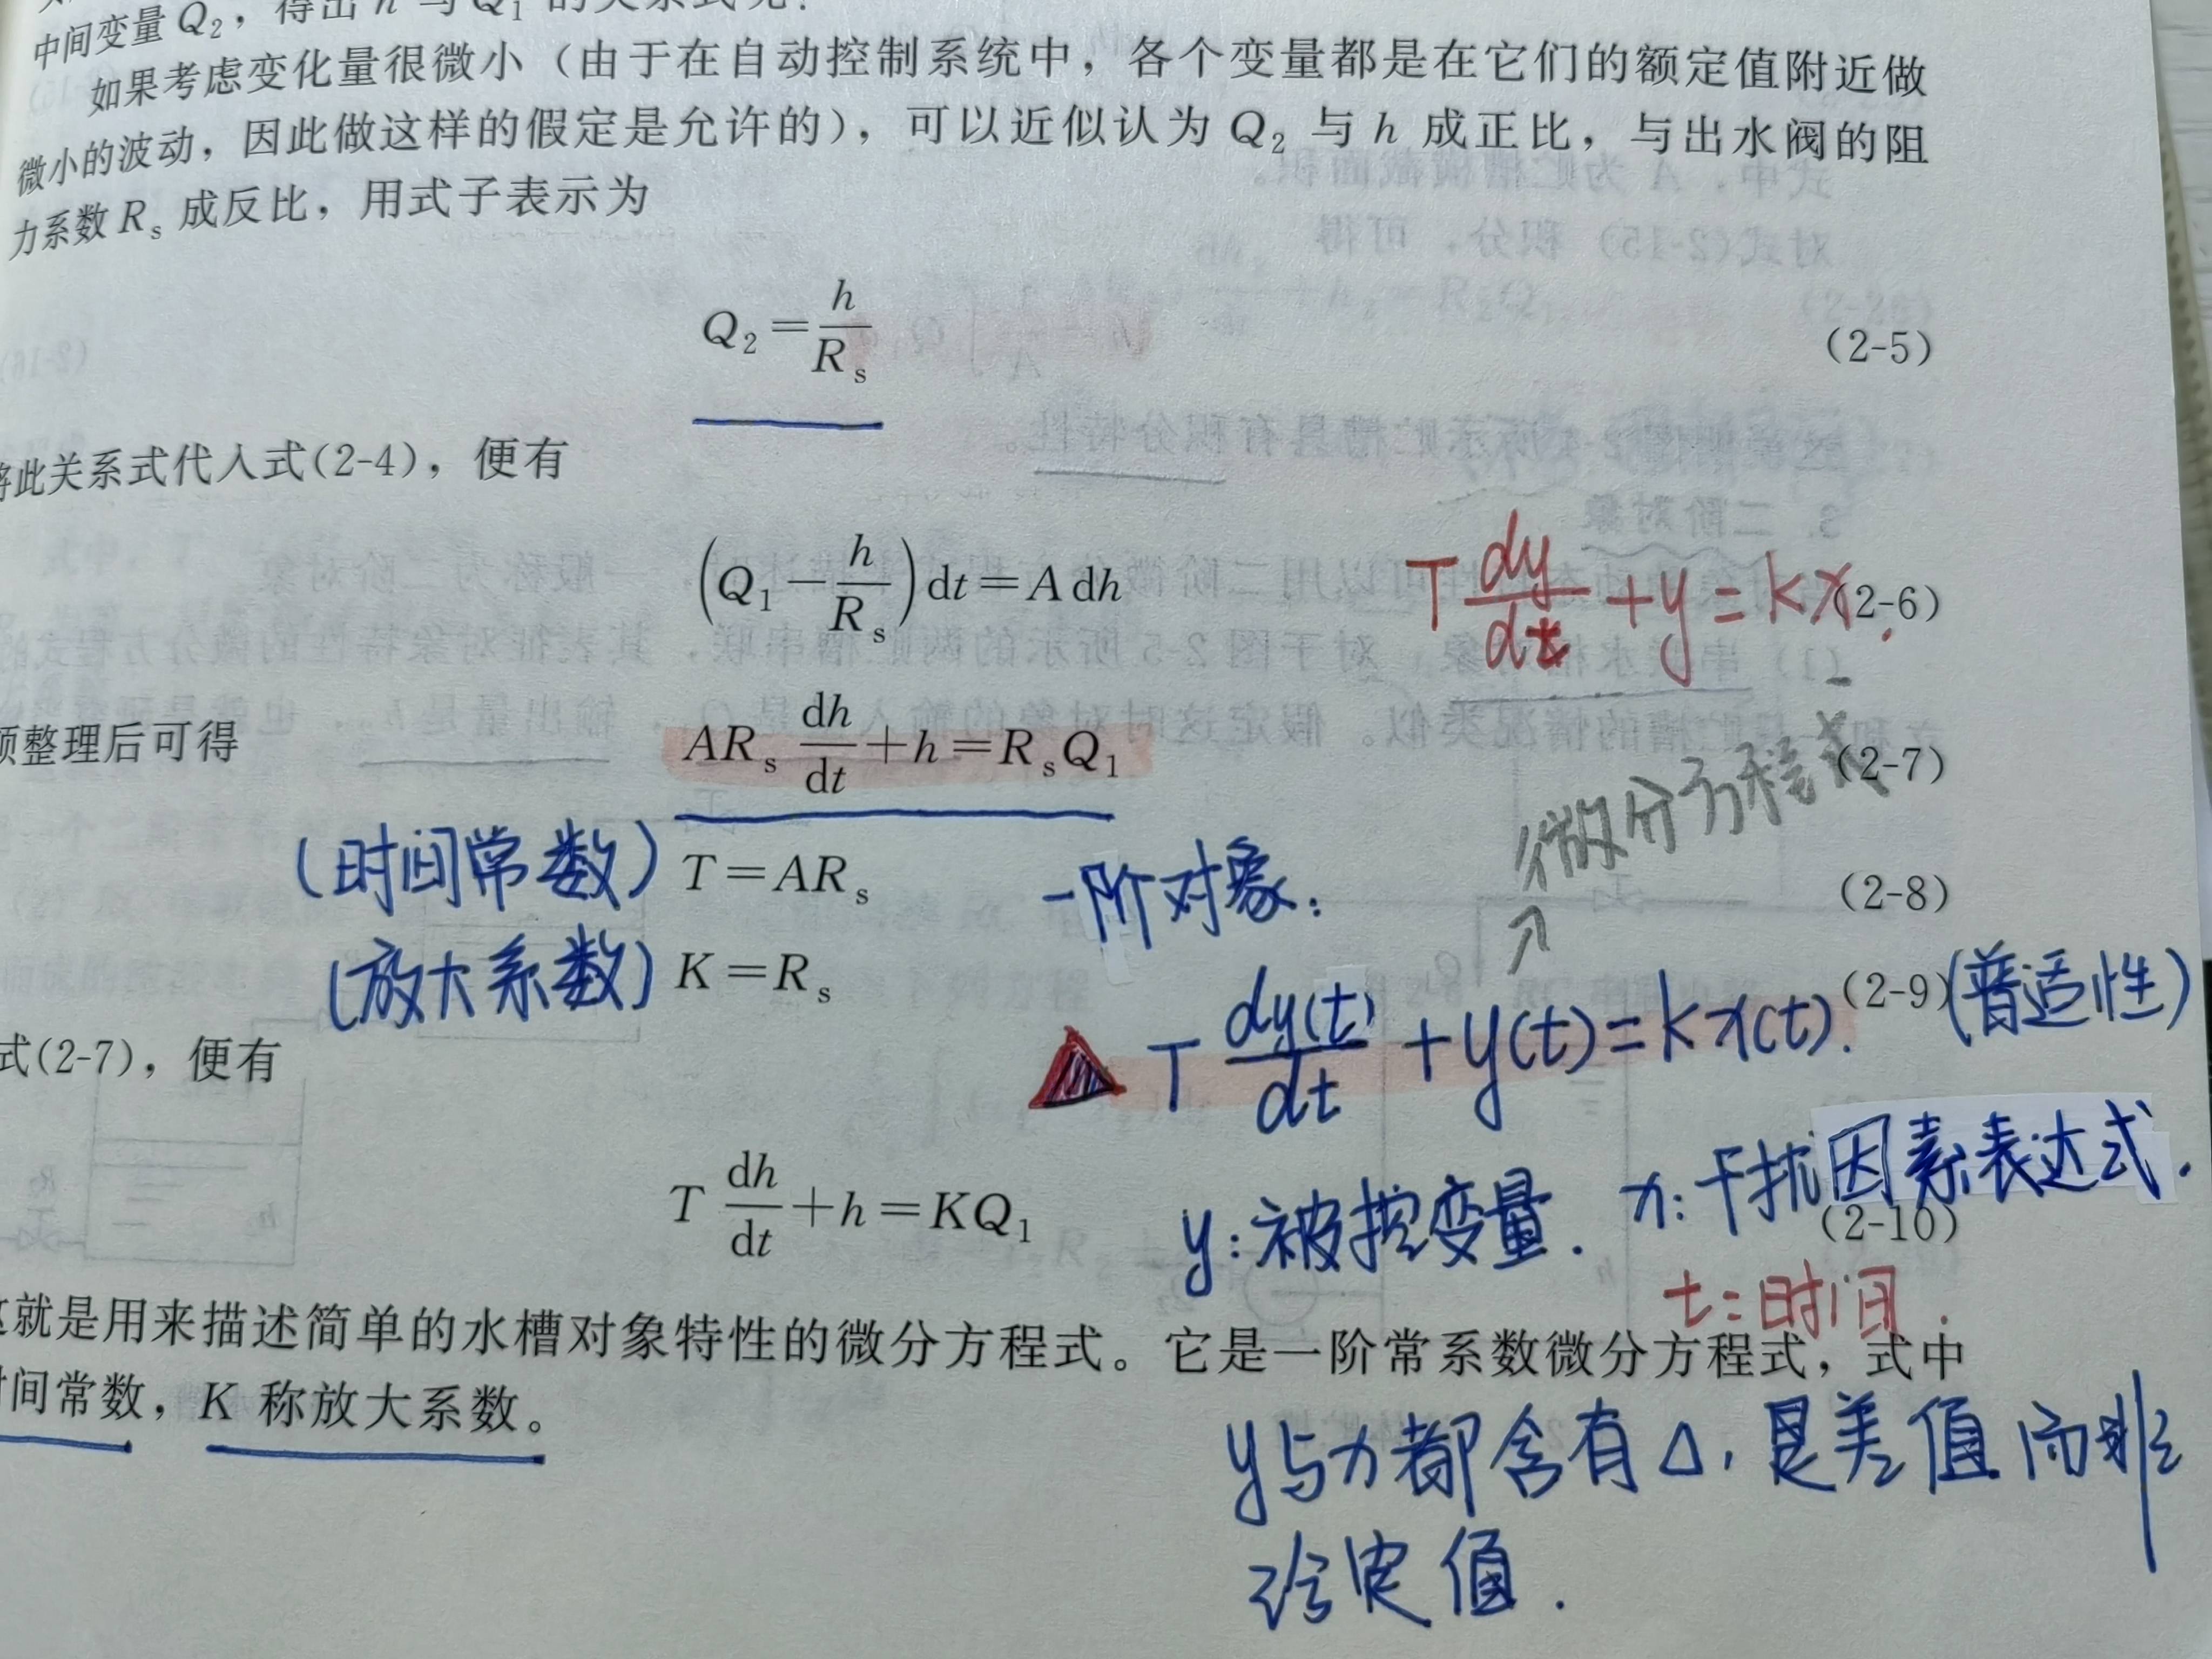 中间变量 Q₂，得出 h 与 Q₁ 的关系式
如果考虑变化量很微小（由于在自动控制系统中，各个变量都是在它们的额定值附近做
微小的波动，因此做这样的假定是允许的），可以近似认为 Q₂ 与 h 成正比，与出水阀的阻
力系数 Rₛ 成反比，用式子表示为
Q₂=h/Rₛ (2-5)
将此关系式代入式(2-4)，便有
(Q₁-h/Rₛ)dt=A dh (2-6)
T dy/dt +y=kx.
项整理后可得
ARₛ dh/dt+h=RₛQ₁ (2-7)
微分方程式
(时间常数) T=ARₛ (2-8)
一阶对象：
(放大系数) K=Rₛ (2-9)
(普适性)
T dy(t)/dt +y(t)=kx(t).
式(2-7)，便有
T dh/dt+h=KQ₁ (2-10)
y:被控变量. x:干扰因素表达式.
t:时间.
这就是用来描述简单的水槽对象特性的微分方程式。它是一阶常系数微分方程式，式中
时间常数，K 称放大系数。
y与x都含有Δ,是差值而非
给定值.